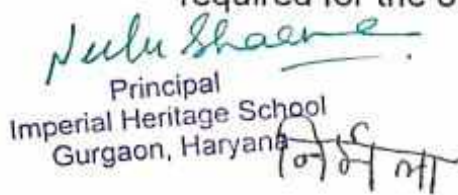 required for the
Neelu Sharma
Principal
Imperial Heritage School
Gurgaon, Haryana